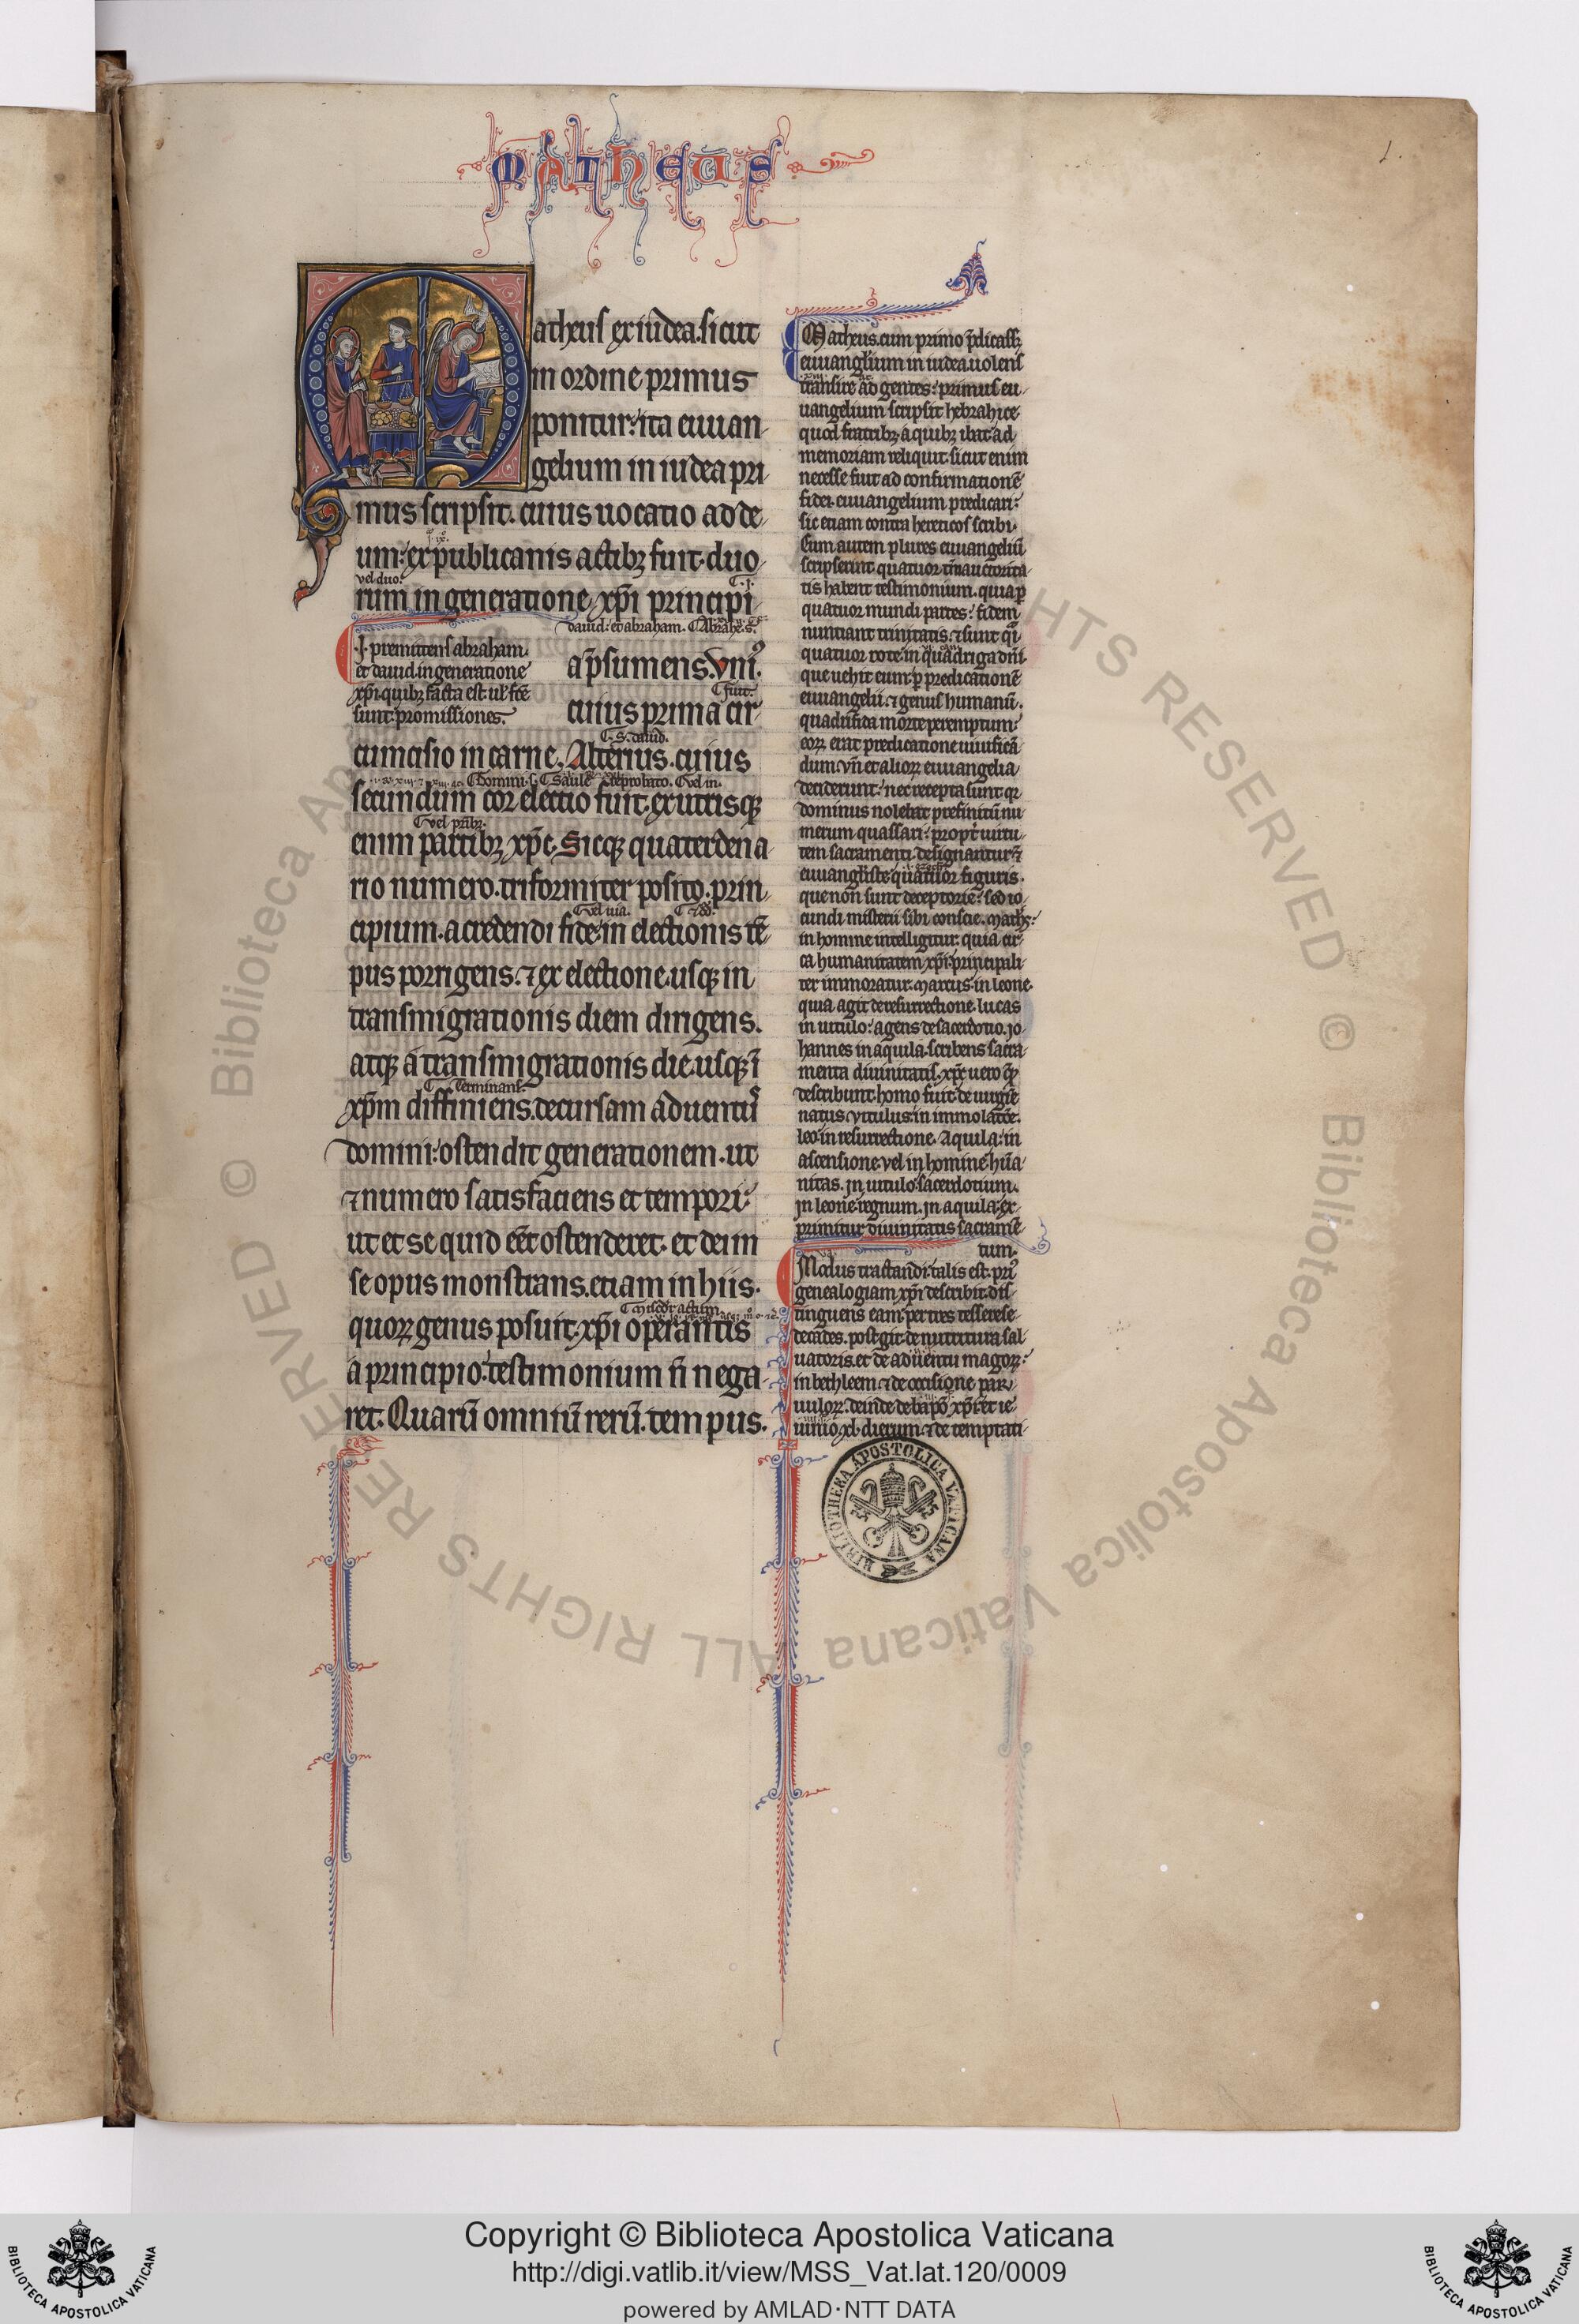 MATHEUS
1.
atheus ex iudea. sicut
in ordine primus
ponitur: ita euuan-
gelium in iudea pri-
mus scripsit. cuius uocatio ad de-
um: ex publicanis actibꝫ fuit. duo-
vel duo.
rum in generatione xp̄i principi-
dauid: et abraham.
.I. premittens abraham.
et dauid. in generatione
xp̄i. quibꝫ facta est ul' fc̄e
sunt: promissiones.
a p̄sumens. Vniꝰ.
fuit.
cuius prima cir-
.S. dauid.
cumcisio in carne. Alterius. cuius
secundum cor electio fuit. ex utrisqꝫ
enim partibꝫ xp̄c. Sicqꝫ quaterdena-
rio numero. triformiter posito. prin-
vel uia.
cipium. a credendi fide: in electionis tē-
pus porrigens: ⁊ ex electione. usqꝫ in
transmigrationis diem dirigens.
atqꝫ a transmigrationis die. usqꝫ ī
Terminans.
xp̄m diffiniens. decursam aduentus
domini: ostendit generationem. ut
⁊ numero satisfaciens et tempori:
ut et se quid eēt ostenderet. et dei in
se opus monstrans. etiam in hiis.
quoꝝ genus posuit: xp̄i operantis
a principio: testimonium n̄ nega-
ret. Quarū omniū rerū. tempus.
Matheus. cum primo p̄dicass;
euuanglium in iudea. uolens
transire ad gentes: primus eu-
uangelium scripsit hebrahice.
quod fratribꝫ a quibꝫ ibat ad
memoriam reliquit. sicut enim
necesse fuit ad confirmationē
fidei. euuangelium predicari:
sic etiam contra hereticos scribi.
Cum autem plures euuangeliū
scripserint. quatuor tn̄ auctorita-
tis habent testimonium. quia ꝑ
quatuor mundi partes: fidem
nuntiant trinitatis. ⁊ sunt qͣi
quatuor rote in quadriga dn̄i.
que uehit eum: ꝑ predicationē
euuangelii. ⁊ genus humanū.
quadrifida morte peremptum:
eoꝝ erat predicatione uiuificā-
dum. vn̄ et alioꝝ euuangelia
deciderunt: nec recepta sunt. qꝛ
dominus nolebat prefinitū nu-
merum quassari: propt' uirtu-
tem sacramenti. designantur ⁊
euuangliste quatuor figuris.
que non sunt deceptorie: sed io-
cundi misterii sibi conscie. Mathꝫ:
in homine intelligitur: quia cir-
ca humanitatem xp̄i. principali-
ter immoratur. Marcus. in leone.
quia agit de resurrectione. lucas
in uitulo: agens de sacerdotio. Jo-
hannes in aquila. scribens sacra-
menta diuinitatis. xp̄c uero quē
describunt. homo fuit. de uirgine
natus. vitulus. in immolatōe.
leo. in resurrectione. Aquila: in
ascensione. vel in homine. hūa-
nitas. in uitulo. sacerdotium.
in leone. regnum. in aquila: ex-
primitur. diuinitatis sacramē-
tum.
Modus tractandi talis est. priꝰ
genealogiam xp̄i describit. dis-
tinguens eam per tres tesserese-
decades. post git. de nutritura sal-
uatoris. et de aduentu magoꝝ:
in bethleem. ⁊ de occisione paru-
uuloꝝ. deinde de bap̄o xp̄i. et ie-
iuinio .xl. dierum. ⁊ de temptati-
BIBLIOTHECA APOSTOLICA VATICANA
© Biblioteca Apostolica Vaticana ALL RIGHTS RESERVED
Copyright © Biblioteca Apostolica Vaticana
http://digi.vatlib.it/view/MSS_Vat.lat.120/0009
powered by AMLAD·NTT DATA
BIBLIOTECA APOSTOLICA VATICANA
BIBLIOTECA APOSTOLICA VATICANA